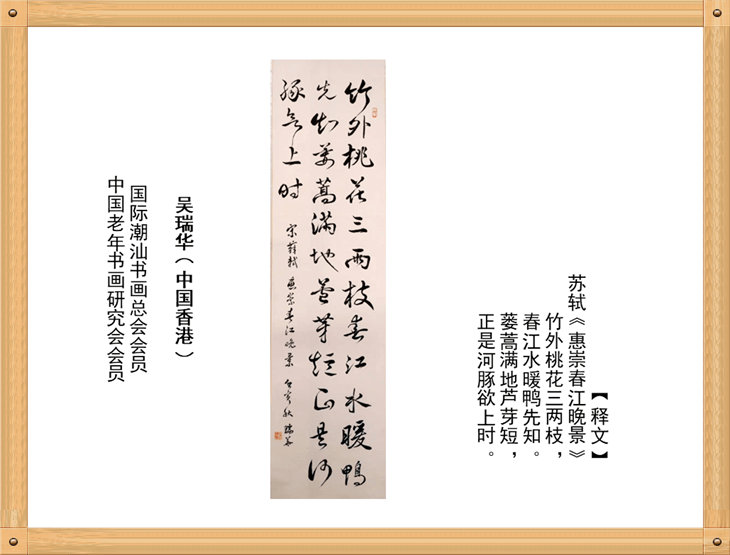 【释文】
苏轼《惠崇春江晚景》
竹外桃花三两枝，
春江水暖鸭先知。
蒌蒿满地芦芽短，
正是河豚欲上时。
竹外桃花三兩枝春江水暖鴨
先知蔞蒿滿地蘆芽短正是河
豚欲上时
宋蘇軾惠崇春江晚景 寅秋瑞華
吴瑞华（中国香港）
国际潮汕书画总会会员
中国老年书画研究会会员